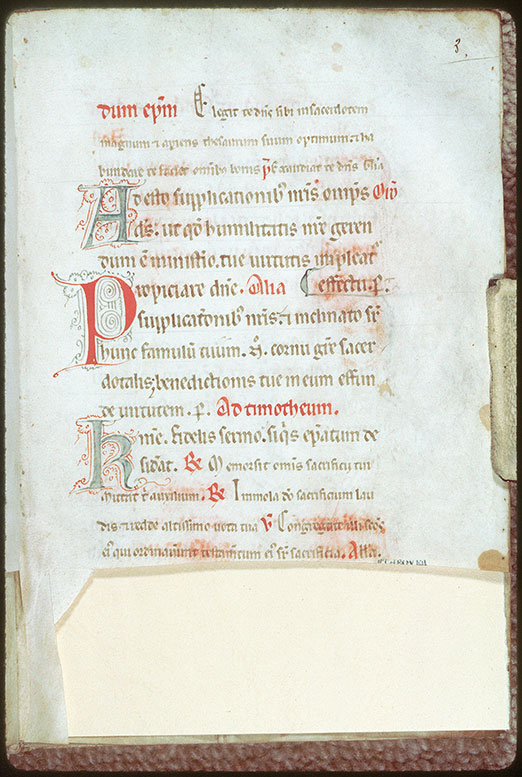 3.
dum ep̄m Elegit te dn̄s sibi in sacerdotem
magnum ⁊ apiens thesaurum suum optimum ⁊ ha
bundare te faciat omnib; bonis
Adesto supplicationib; nr̄is omp̄s
ds̄. ut qd̄ humilitatis nr̄e geren
dum ē ministerio. tue uirtutis impleat͛
Propiciare dn̄e. Alia effectu. p.
supplicationib; nr̄is ⁊ inclinato sr̄
hunc famulū tuum. cornu gr̄e sacer
dotalis, benedictionis tue in eum effun
de uirtutem. p. Ad timotheum.
Kmē. Fidelis sermo. si q̄s ep̄atum de
siđat. Memor sit om̄is sacrificij tui
Mittat t̄ auxilium. Immola dō sacrificium lau
dis ⁊ redde altissimo uota tua Congregate illi sc̄os
ei᷒ qui ordinauer̄t testam̄tum ei᷒ sr̄ sacrificia. All'a.